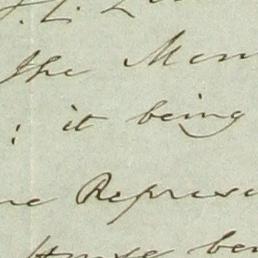 The Mem
: it being
Represe
House be